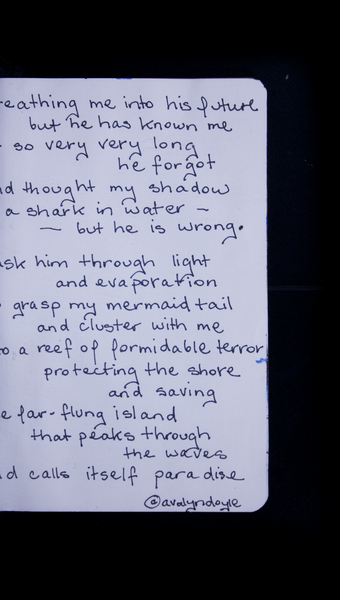 reathing me into his future
but he has known me
so very very long
he forgot
nd thought my shadow
a shark in water –
– but he is wrong.
ask him through light
and evaporation
grasp my mermaid tail
and cluster with me
o a reef of formidable terror
protecting the shore
and saving
e far-flung island
that peaks through
the waves
d calls itself paradise
@avalyndoyle